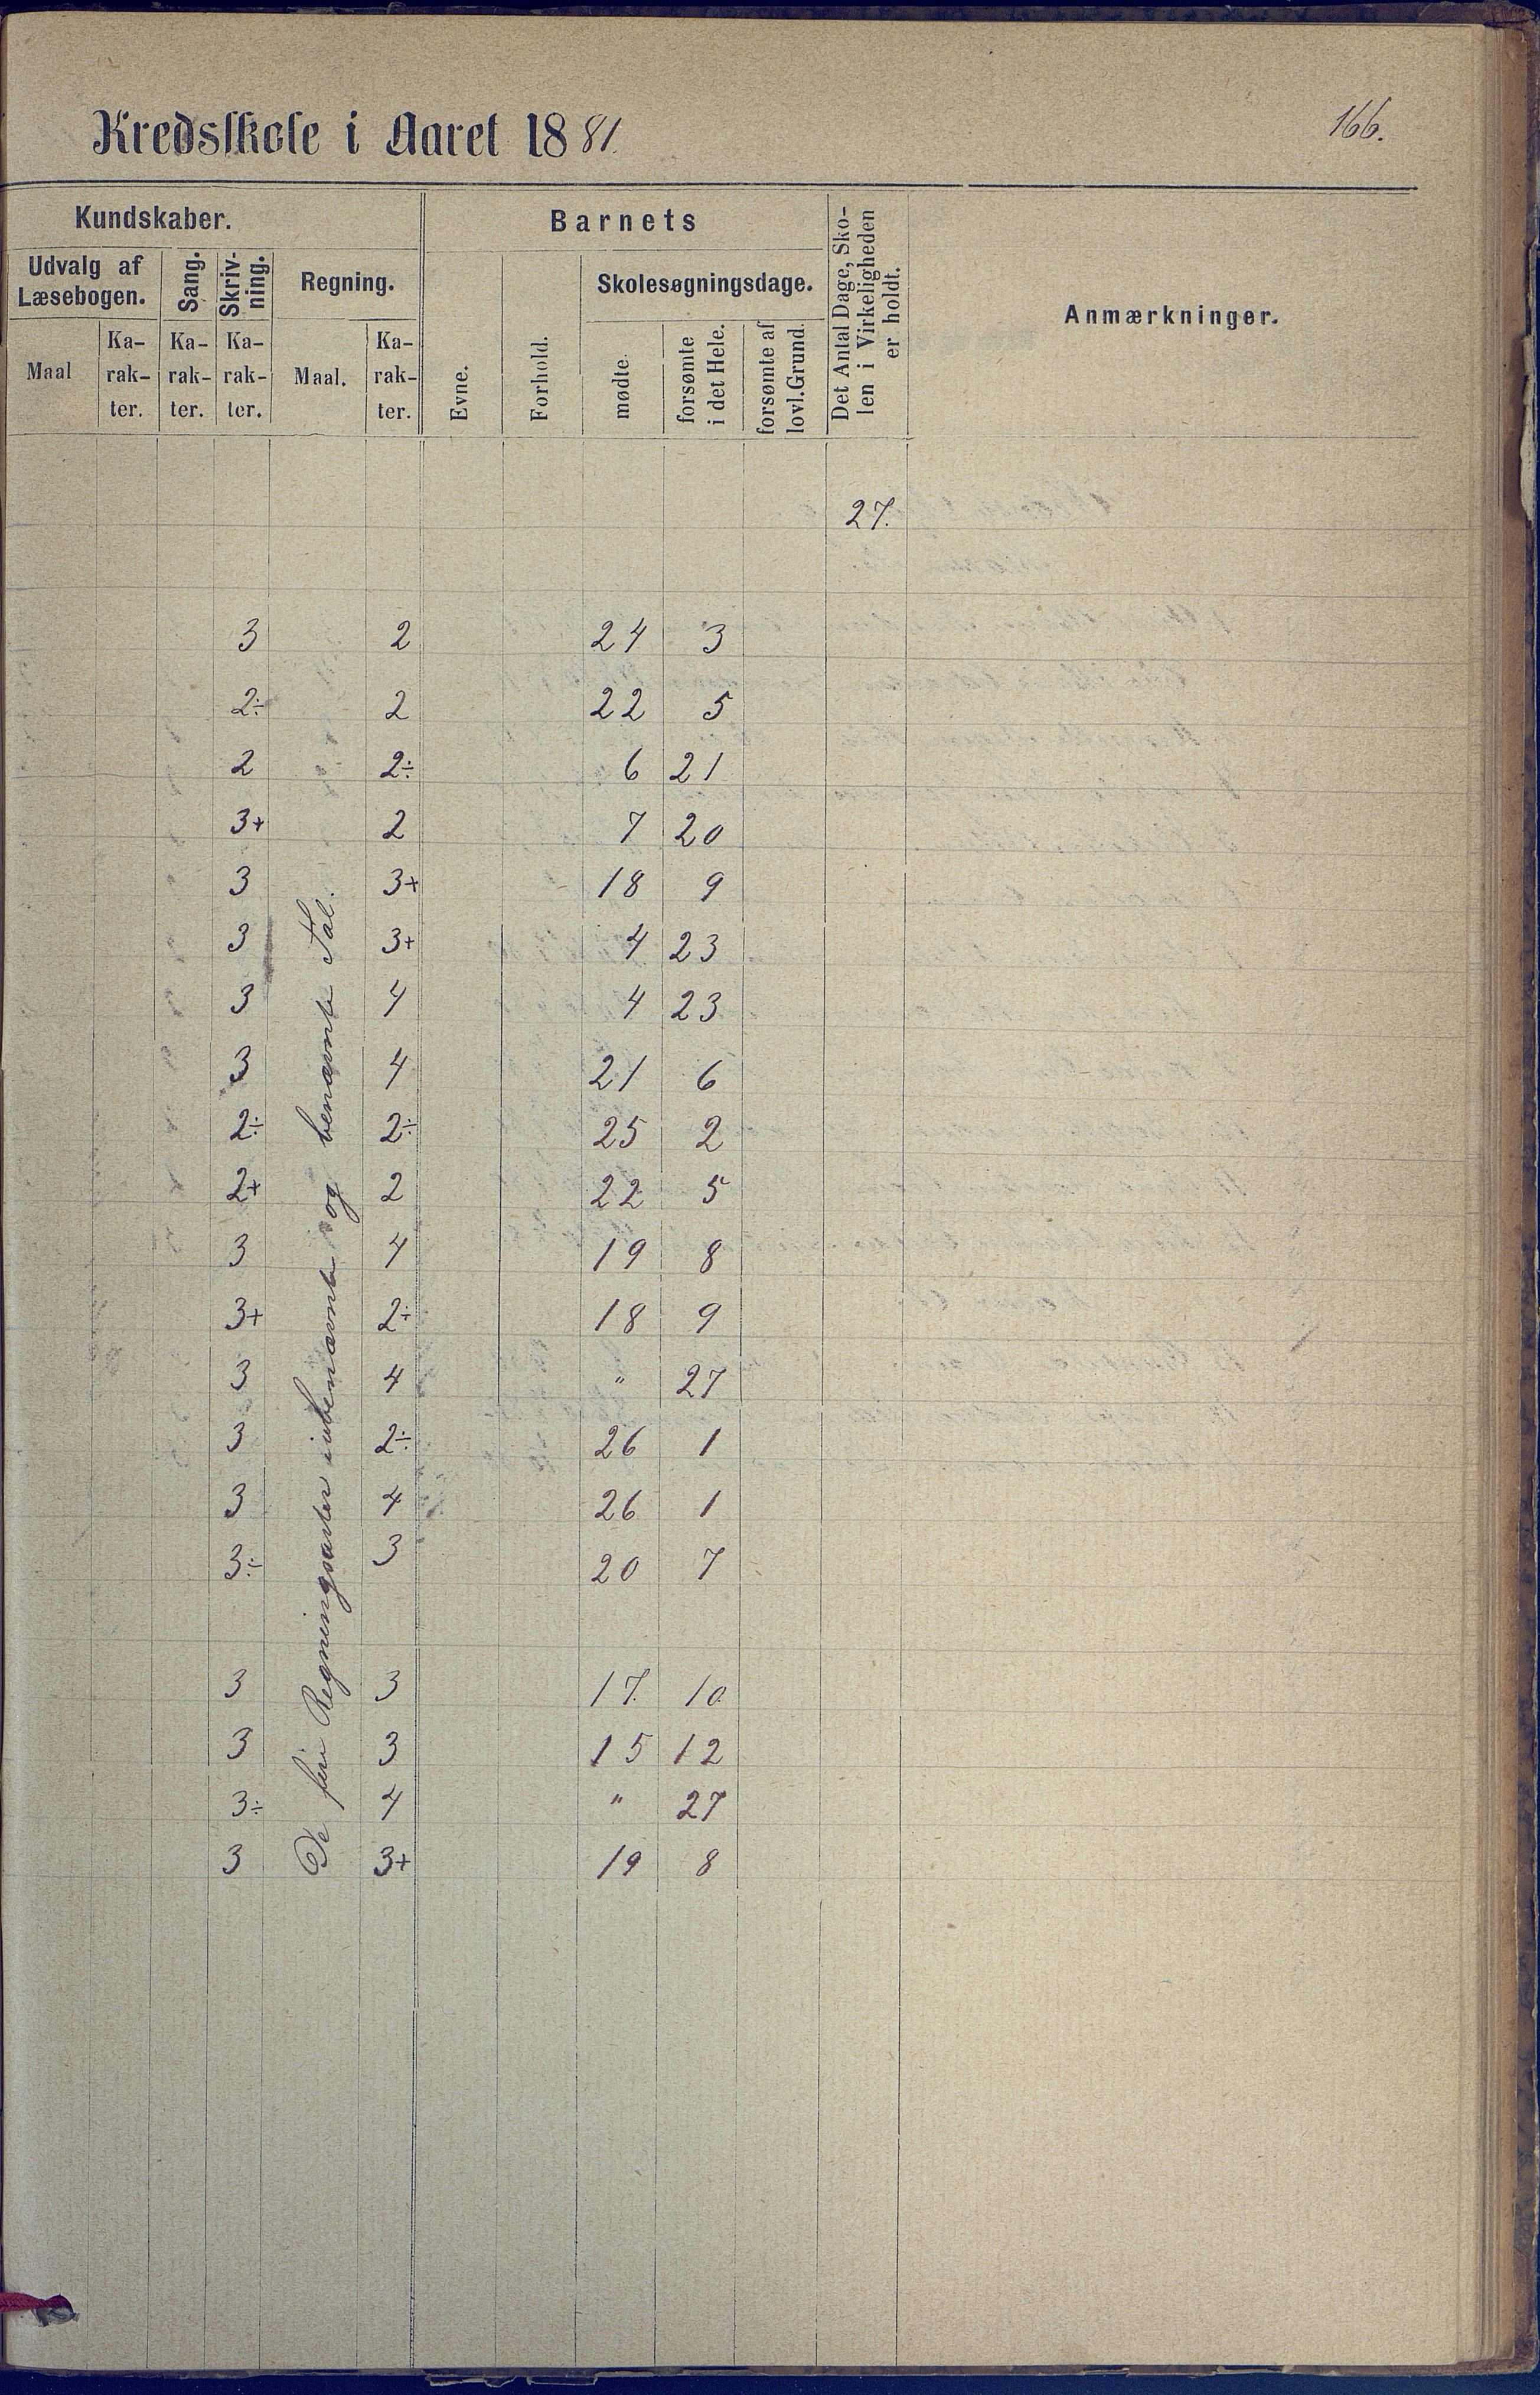 Kredsskole i Aaret 1881.
166.
Kundskaber.
Barnets
Det Antal Dage, Sko-
len i Virkeligheden
er holdt.
Anmærkninger.
Udvalg af
Læsebogen.
Sang.
Skriv-
ning.
Regning.
Evne.
Forhold.
Skolesøgningsdage.
Maal
Ka-
rak-
ter.
Ka-
rak-
ter.
Ka-
rak-
ter.
Maal.
Ka-
rak-
ter.
mødte.
forsømte
i det Hele.
forsømte af
lovl. Grund.
27.
De fire Regningsarter i ubenævnte og benævnte Tal.
3 2 24 3
2÷ 2 22 5
2 2÷ 6 21
3+ 2 7 20
3 3+ 18 9
3 3+ 4 23
3 4 4 23
3 4 21 6
2÷ 2÷ 25 2
2+ 2 22 5
3 4 19 8
3+ 2÷ 18 9
3 4 " 27
3 2÷ 26 1
3 4 26 1
3÷ 3 20 7
3 3 17. 10.
3 3 15 12
3÷ 4 " 27
3 3+ 19 8